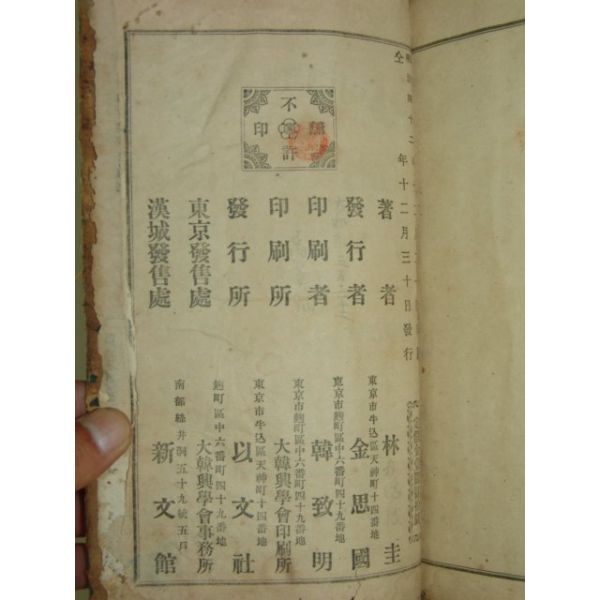 年十二月三十日發行
不許
印
著者
東京市牛込區天神町十四番地
林圭
發行者
金思國
印刷者
東京市麴町區中六番町四十九番地
韓致明
印刷所
東京市麴町區中六番町四十九番地
大韓興學會印刷所
發行所
東京市牛込區天神町十四番地
以文社
東京發售處
麴町區中六番町四十九番地
大韓興學會事務所
漢城發售處
南部絲井洞五十九統五戶
新文館